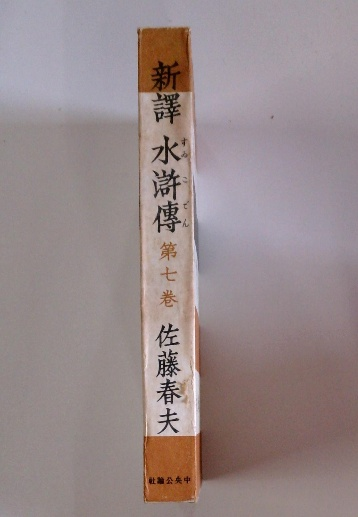 新譯 水滸傳
すゐこでん
第七巻
佐藤春夫
中央公論社